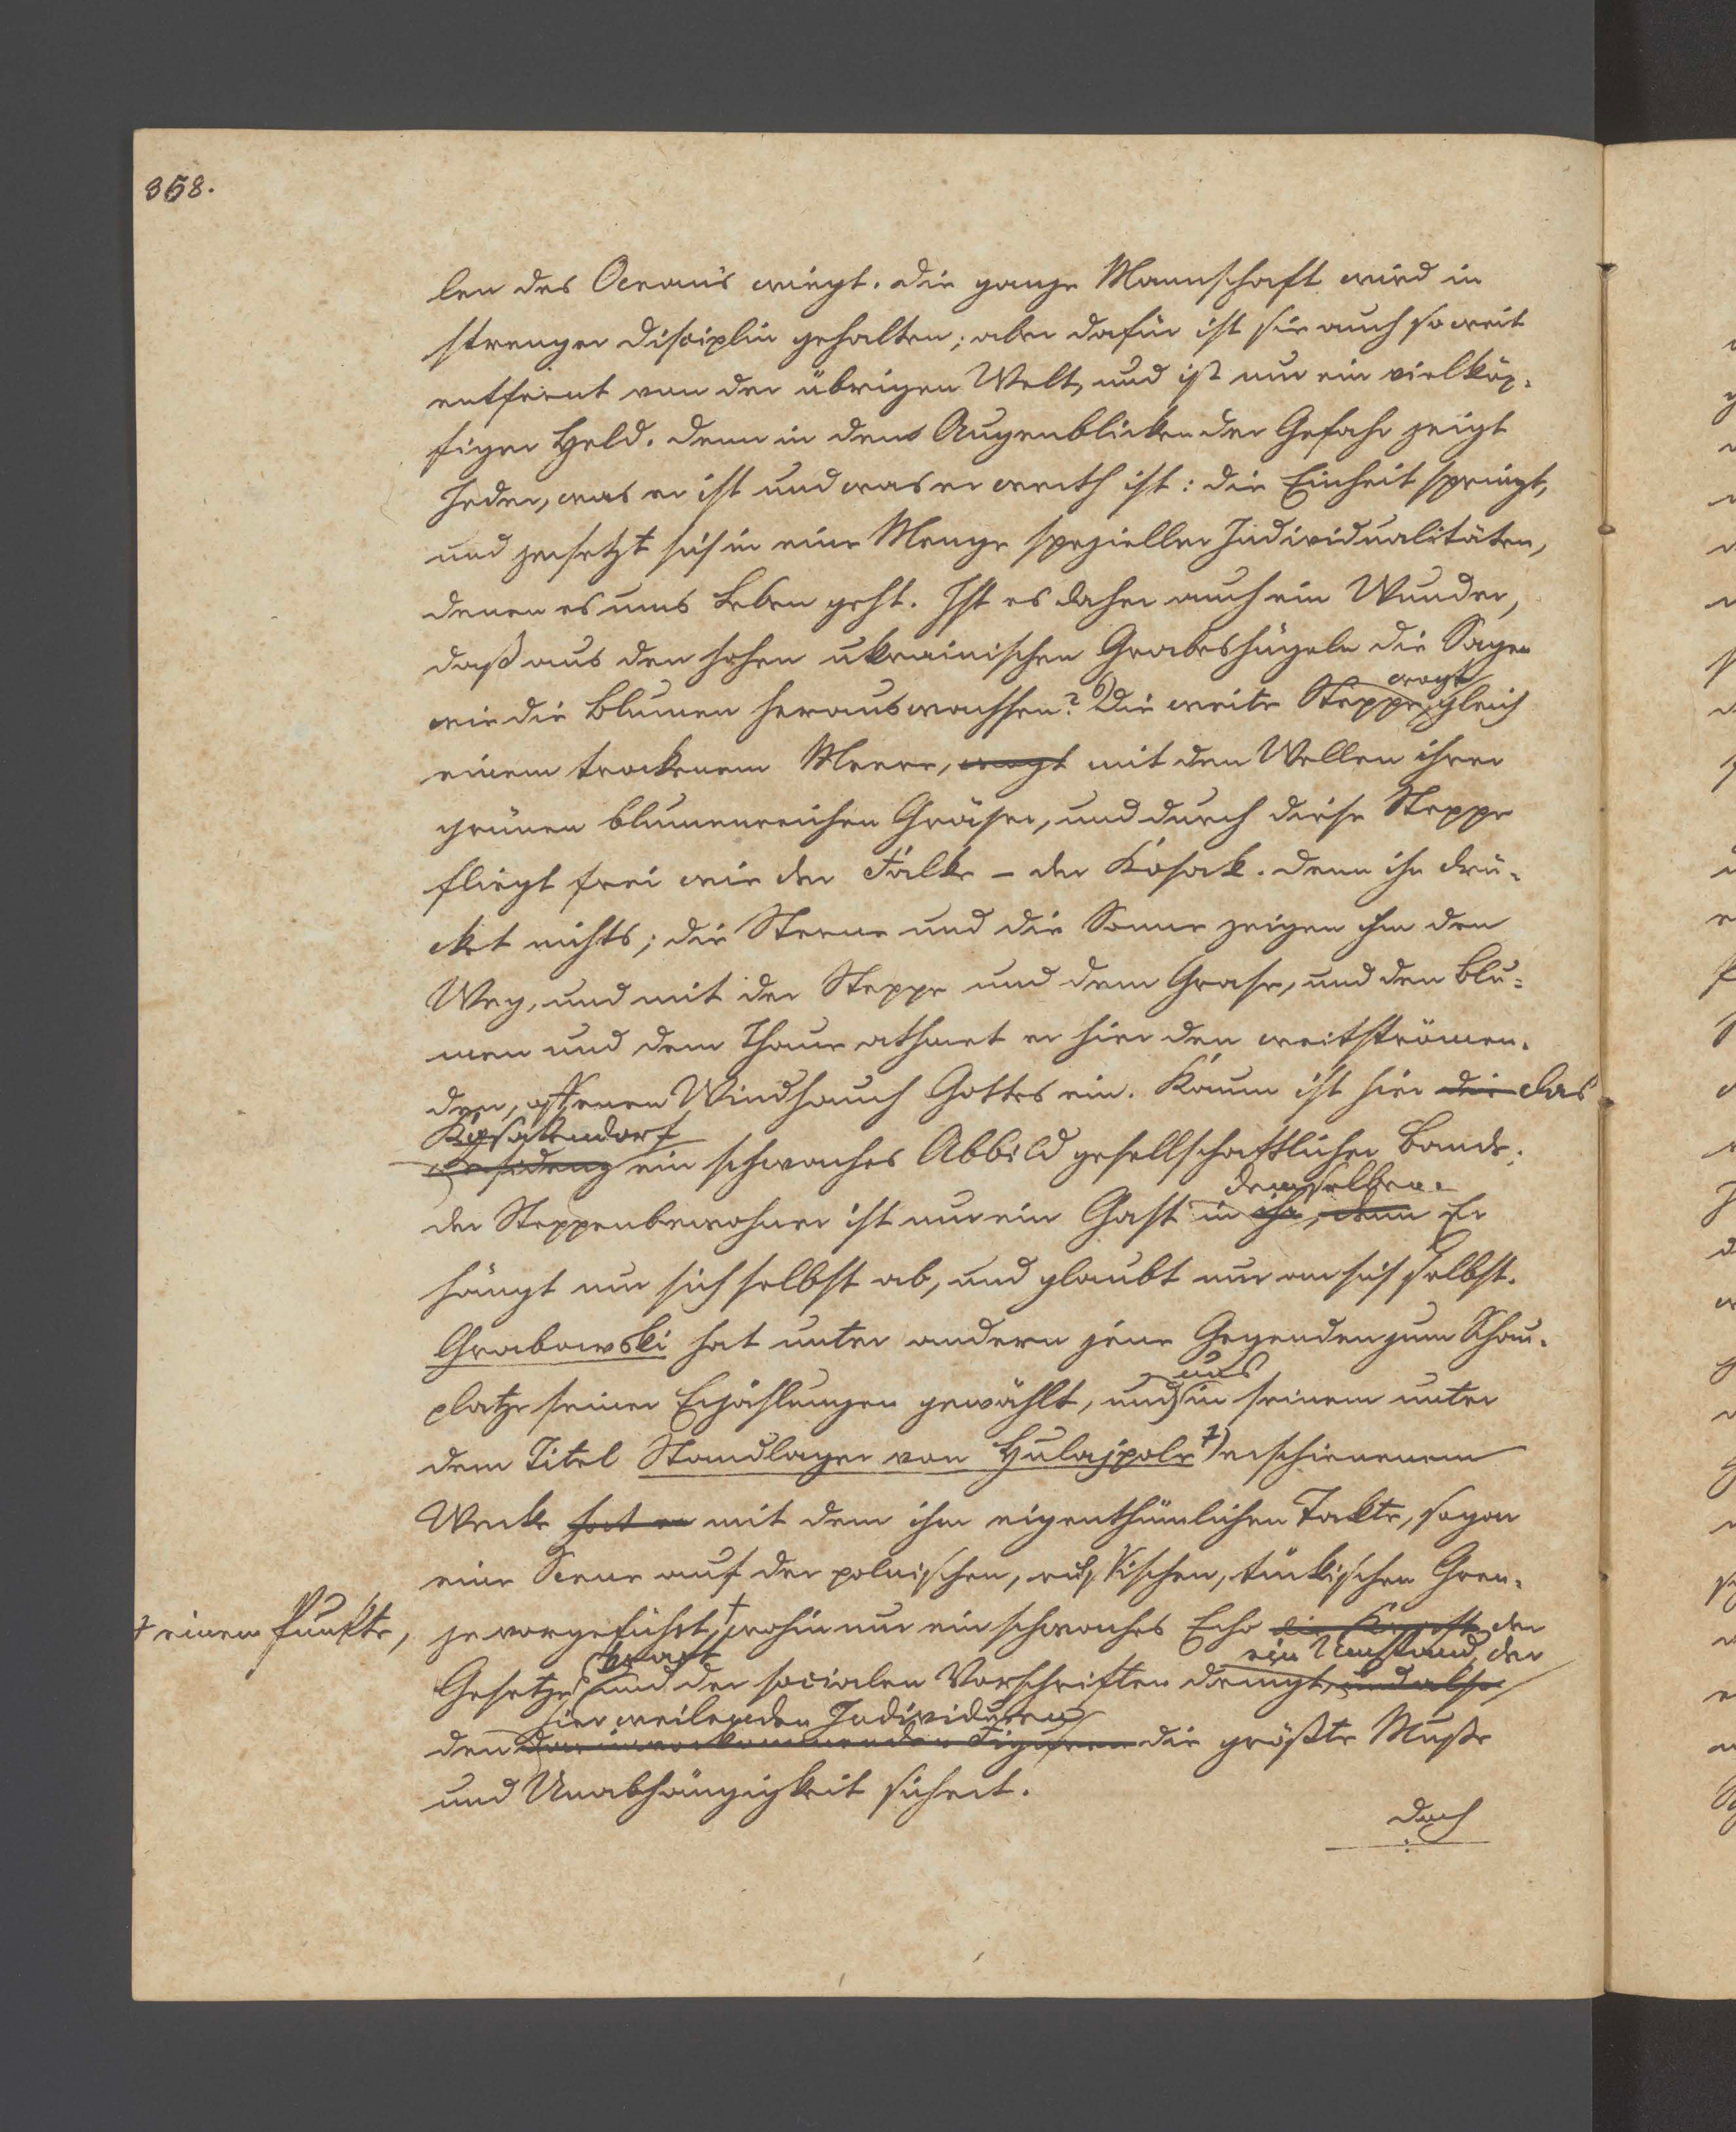 358.
len des Ocean's wiegt. Die ganze Mannschaft wird in
strenger Disciplin gehalten; aber dafür ist sie auch so weit
entfernt von der übrigen Welt, und ist nur ein vielköp-
figer Held. Denn in dem Augenblicken der Gefahr zeigt
Jeder, was er ist und was er werth ist: die Einheit springt,
und zersetzt sich in eine Menge spezieller Individualitäten,
denen es ums Leben geht. Ist es daher auch ein Wunder,
daß aus den hohen ukrainischen Grabeshügeln die Sagen
wogt
wie die Blumen herauswachsen? 6) Die weite Steppe gleich
einem trockenem Meere, wogt mit den Wellen ihrer
grünen blumenreichen Gräser, und durch diese Steppe
fliegt frei wie der Falke – der Kosak. Denn ihn drü-
cket nichts; die Sterne und die Sonne zeigen ihm den
Weg, und mit der Steppe und dem Grase, und den Blu-
men und dem Thaue athmet er hier den weitströmen-
den, offenen Windhauch Gottes ein. Kaum ist hier die das
Kosakendorf
Residenz ein schwaches Abbild gesellschaftlicher Bande;
demselben.
der Steppenbewohner ist nur ein Gast in ihr, denn Er
hängt nur sich selbst ab, und glaubt nur an sich selbst.
Grabowski hat unter andern jene Gegenden zum Schau-
uns
platze seiner Erzählungen gewählt, und in seinem unter
dem Titel Standlager von Hulajpole 7) erschienenem
Werke hat er mit dem ihm eigenthümlichen Takte, sogar
eine Scene auf der polnischen, russischen, türkischen Gren-
+ einem Punkte,
ze vorgeführt, + wohin nur ein schwaches Echo die Kraft der
Kraft
ein Umstand, der
Gesetze und der socialen Vorschriften dringt, und also
hier weilenden Individuen
den darin vorkommenden Figuren die größte Muße
und Unabhängigkeit sichert.
Doch